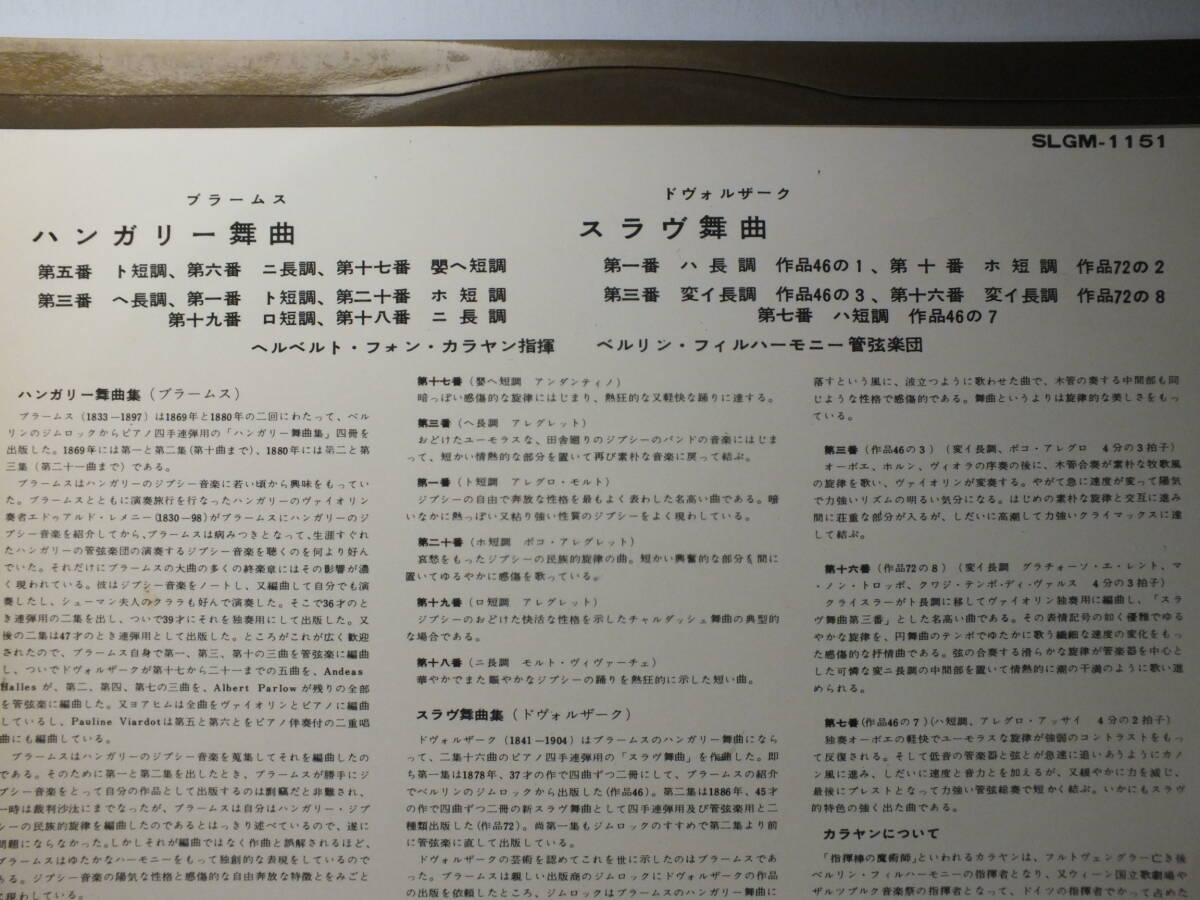 SLGM-1151
ブラームス
ハンガリー舞曲
第五番 ト短調、第六番 ニ長調、第十七番 嬰ヘ短調
第三番 ヘ長調、第一番 ト短調、第二十番 ホ短調
第十九番 ロ短調、第十八番 ニ長調
ドヴォルザーク
スラヴ舞曲
第一番 ハ長調 作品46の1、第十番 ホ短調 作品72の2
第三番 変イ長調 作品46の3、第十六番 変イ長調 作品72の8
第七番 ハ短調 作品46の7
ヘルベルト・フォン・カラヤン指揮 ベルリン・フィルハーモニー管弦楽団
ハンガリー舞曲集(ブラームス)
ブラームス(1833-1897)は1869年と1880年の二回にわたって、ベル
リンのジムロックからピアノ四手連弾用の「ハンガリー舞曲集」四冊を
出版した。1869年には第一と第二集(第十曲まで)、1880年には第二と第
三集(第二十一曲まで)である。
ブラームスはハンガリーのジプシー音楽に若い頃から興味をもってい
た。ブラームスとともに演奏旅行を行なったハンガリーのヴァイオリン
奏者エドゥアルド・レメニー(1830-98)がブラームスにハンガリーのジ
プシー音楽を紹介してから、ブラームスは病みつきとなって、生涯すぐれ
たハンガリーの管弦楽団の演奏するジプシー音楽を聴くのを何より好ん
でいた。それだけにブラームスの大曲の多くの終楽章にはその影響が濃
く現われている。彼はジプシー音楽をノートし、又編曲して自分でも演
奏したし、シューマン夫人のクララも好んで演奏した。そこで36才のと
き連弾用の二集を出し、ついで39才にそれを独奏用にして出版した。又
後の二集は47才のとき連弾用として出版した。ところがこれが広く歓迎
されたので、ブラームス自身で第一、第三、第十の三曲を管弦楽に編曲
し、ついでドヴォルザークが第十七から二十一までの五曲を、Andeas
Halles が、第二、第四、第七の三曲を、Albert Parlow が残りの全部
を管弦楽に編曲した。又ヨアヒムは全曲をヴァイオリンとピアノに編曲
しているし、Pauline Viardotは第五と第六とをピアノ伴奏付の二重唱
曲にも編曲している。
ブラームスはハンガリーのジプシー音楽を蒐集してそれを編曲したの
である。そのために第一と第二集を出したとき、ブラームスが勝手にジ
プシー音楽をとって自分の作品として出版するのは剽竊だと非難され、
一時は裁判沙汰にまでなったが、ブラームスは自分はハンガリー・ジプ
シーの民族的旋律を編曲したのであるとはっきり述べているので、遂に
問題にならなかった。しかしそれが編曲ではなく作曲と誤解されるほど、
ブラームスはゆたかなハーモニーをもって独創的な表現をしているので
ある。ジプシー音楽の陽気な性格と感傷的な自由奔放な特徴とをみごと
に現わしている。
第十七番(嬰ヘ短調 アンダンティノ)
暗っぽい感傷的な旋律にはじまり、熱狂的な又軽快な踊りに達する。
第三番(ヘ長調 アレグレット)
おどけたユーモラスな、田舎廻りのジプシーのバンドの音楽にはじま
って、短かい情熱的な部分を置いて再び素朴な音楽に戻って結ぶ。
第一番(ト短調 アレグロ・モルト)
ジプシーの自由で奔放な性格を最もよく表わした名高い曲である。暗
いなかに熱っぽい又粘り強い性質のジプシーをよく現わしている。
第二十番(ホ短調 ポコ・アレグレット)
哀愁をもったジプシーの民族的旋律の曲。短かい興奮的な部分を間に
置いてゆるやかに感傷を歌っている。
第十九番(ロ短調 アレグレット)
ジプシーのおどけた快活な性格を示したチャルダッシュ舞曲の典型的
な場合である。
第十八番(ニ長調 モルト・ヴィヴァーチェ)
華やかでまた賑やかなジプシーの踊りを熱狂的に示した短い曲。
スラヴ舞曲集(ドヴォルザーク)
ドヴォルザーク(1841-1904)はブラームスのハンガリー舞曲になら
って、二集十六曲のピアノ四手連弾用の「スラヴ舞曲」を作曲した。即
ち第一集は1878年、37才の作で四曲ずつ二冊にして、ブラームスの紹介
でベルリンのジムロックから出版した(作品46)。第二集は1886年、45才
の作で四曲ずつ二冊の新スラヴ舞曲として四手連弾用及び管弦楽用と二
種類出版した(作品72)。尚第一集もジムロックのすすめで第二集より前
に管弦楽に直して出版している。
ドヴォルザークの芸術を認めてこれを世に示したのはブラームスであ
った。ブラームスは親しい出版商のジムロックにドヴォルザークの作品
の出版を依頼したところ、ジムロックはブラームスのハンガリー舞曲に
落すという風に、波立つように歌わせた曲で、木管の奏する中間部も同
じような性格で感傷的である。舞曲というよりは旋律的な美しさをもっ
ている。
第三番(作品46の3)(変イ長調、ポコ・アレグロ 4分の3拍子)
オーボエ、ホルン、ヴィオラの序奏の後に、木管合奏が素朴な牧歌風
の旋律を歌い、ヴァイオリンが変奏する。やがて急に速度が変って陽気
で力強いリズムの明るい気分になる。はじめの素朴な旋律と交互に進み
間に荘重な部分が入るが、しだいに高潮して力強いクライマックスに達
して結ぶ。
第十六番(作品72の8)(変イ長調 グラチォーソ・エ・レント、マ
・ノン・トロッポ、クワジ・テンポ・ディ・ヴァルス 4分の3拍子)
クライスラーがト長調に移してヴァイオリン独奏用に編曲し、「スラ
ヴ舞曲第三番」とした名高い曲である。その表情記号の如く優雅でゆる
やかな旋律を、円舞曲のテンポでゆたかに歌う繊細な速度の変化をもっ
た感傷的な抒情曲である。弦の合奏する滑らかな旋律が管楽器を中心と
した可憐な変ニ長調の中間部を置いて情熱的に潮の干満のように歌い進
められる。
第七番(作品46の7)(ハ短調、アレグロ・アッサイ 4分の2拍子)
独奏オーボエの軽快でユーモラスな旋律が強弱のコントラストをもっ
て反復される。そして低音の管楽器と弦とが急速に追いあうようにカノ
ン風に進み、しだいに速度と音力とを加えるが、又緩やかに力を減じ、
最後にプレストとなって力強い管弦総奏で短かく結ぶ。いかにもスラヴ
的特色の強く出た曲である。
カラヤンについて
「指揮棒の魔術師」といわれるカラヤンは、フルトヴェングラー亡き後
ベルリン・フィルハーモニーの指揮者となり、又ウィーン国立歌劇場や
ザルツブルク音楽祭の指揮者となって、ドイツの指揮者でかって占めた